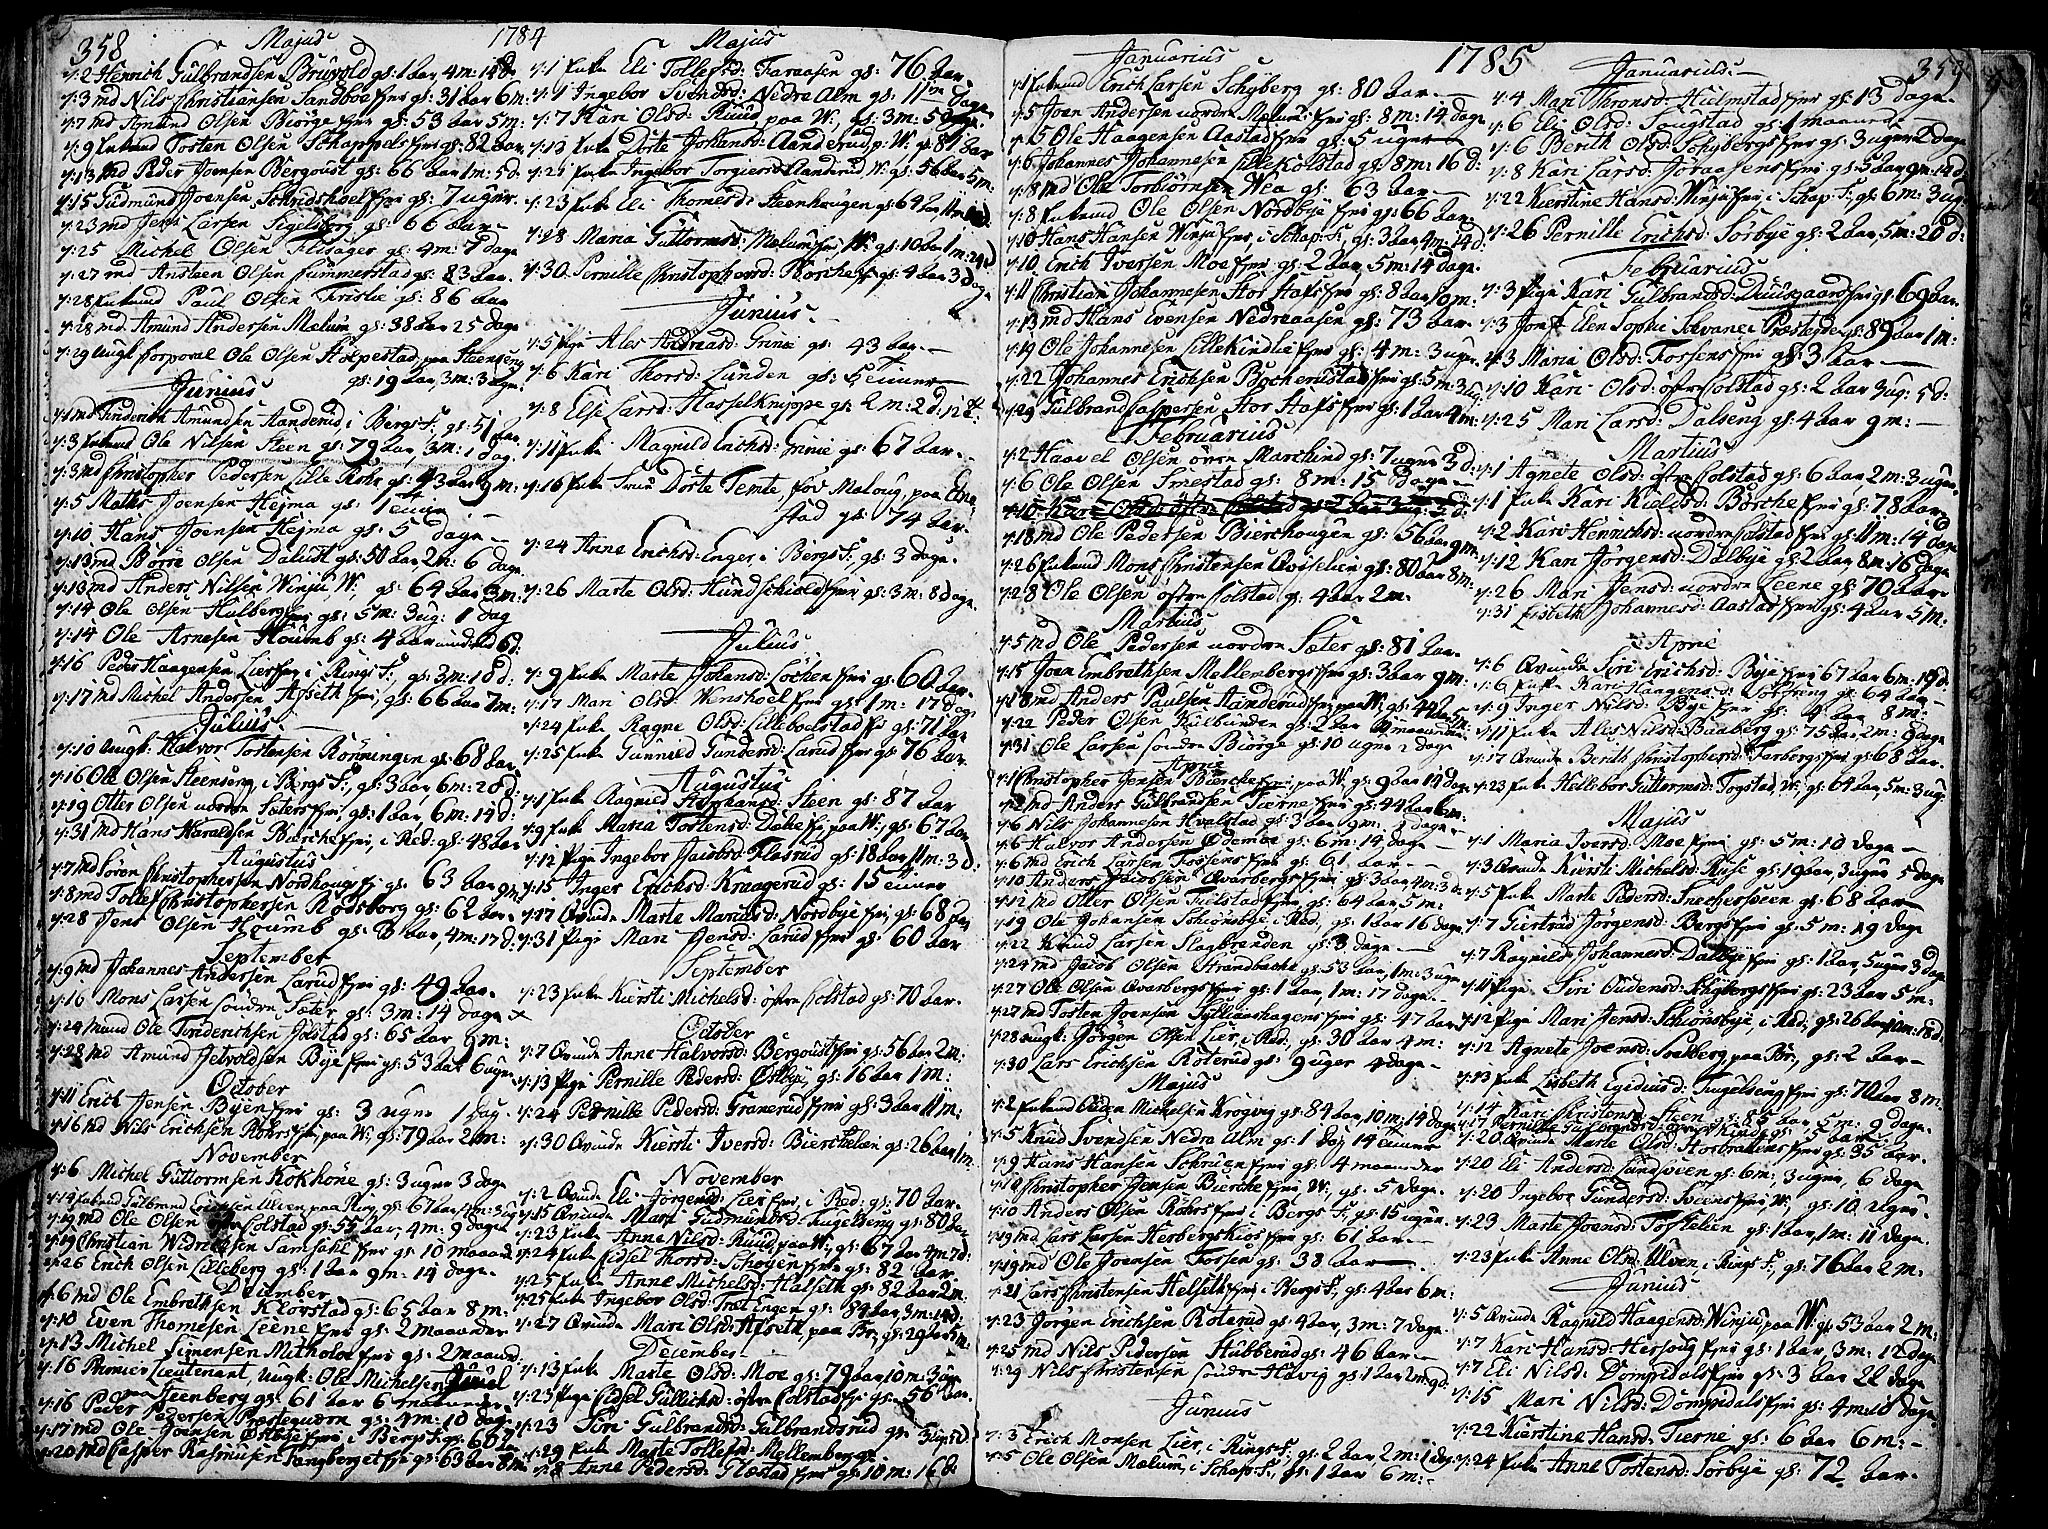 358
1784
Majus
d: 2 Henrich Gulbrandsen Bruvold gs: 1 Aar 4 m: 14 d.
d: 3 md Nils Christiansen Sandboe fmi gs: 31 Aar 6 m:
d: 7 md Amund Olsen Biørge fmi gs: 53 Aar 5 m:
d: 9 Enkmd Tosten Olsen Schappels fmi gs: 82 Aar
d: 13 md Peder Joensen Bergoust gs: 66 Aar 1 m: 5 d.
d: 15 Gudmund Joensen Schridshoel fmi gs: 7 uger.
d: 23 md Jens Larsen Sigelsberg gs: 66 Aar
d: 25 Michel Olsen Flisager gs: 4 m: 7 dage
d: 27 md Anstaen Olsen Fummerstad gs: 83 Aar.
d: 28 Enkmd Paul Olsen Fristie gs: 86 Aar
d: 28 md Amund Andersen Mælum gs: 38 Aar 25 dage
d: 29 ungk. Corporal Ole Olsen Stolpestad paa Steenseng
gs: 19 Aar 3 m: 3 uger.
Junius
d: 1 md Friderich Amundsen Aanderud i Bergs S. gs: 51 Aar.
d: 3 Enkmd Ole Nilsen Steen gs: 79 Aar, 3 m: 1 dag.
d: 3 md Christopher Pedersen Lille Rohr gs: 43 Aar 9 m:
d: 5 Mathis Joensen Hejma gs: 1 time
d: 10 Hans Joensen Hejma gs: 5 dage
d: 13 md Børre Olsen Dalust gs: 50 Aar 2 m: 6 dage
d: 13 md Anders Nilsen Winju W. gs: 64 Aar 3 m:
d: 14 Ole Olsen Hulberg fmi gs: 5 m: 3 ug: 1 dag
d: 14 Ole Arnesen Houmb gs: 4 Aar mindre 6 d:
d: 16 Peder Haagensen Lier fmi i Rings S., gs: 3 m: 10 d:
d: 17 md Michel Andersen Apseth fmi, gs: 66 Aar 7 m:
Julius
d: 10 ungk. Halvor Tostensen Rønningen gs: 68 Aar
d: 16 Ole Olsen Steenseng, i Bergs S., gs: 3 Aar, 6 m: 28 d:
d: 19 Otter Olsen nordre Sæters fmi, gs: 1 Aar, 6 m: 14 d:
d: 31 md Hans Haraldsen Børche fmi, i Red: gs: 48 Aar
Augustus
d: 7 md Søren Christophersen Nordhoug fj gs. 63 Aar 9 m.
d: 8 md Tolle Christophersen Rodsborg gs: 62 Aar.
d: 28 Jens Olsen Houmb gs: 3 Aar, 4 m: 17 d:
September
d: 9 md Johannes Andersen Larud fmi gs: 49 Aar.
d: 16 Mons Larsen søndre Sæter gs: 3 m: 14 dage
d: 24 mand Ole Friderichsen Jolstad gs: 65 Aar 9 m:
d: 28 md Amund Jetvoldsen Bye fmi gs: 53 Aar 6 uger
October
d: 11 Erich Jensen Byen fmi gs: 3 uger 1 dag.
d: 16 md Nils Erichsen Rohrs fmi, paa W. gs: 79 Aar 2 m:
November
d: 6 Michel Guttormsen Kokhone gs: 3 uger 3 dage
d: 14 Enkmd Gulbrand Erichsen Ulven paa Ring gs: 67 Aar
d: 19 md Ole Olsen øfre Colstad gs: 55 Aar, 4 m: 9 dage
d: 19 Christian Widrichsen Samsahl fmi gs: 10 maaned
d: 26 Erich Olsen Lilleberg gs: 1 Aar 9 m: 14 dage.
December
d: 6 md Ole Embrethsen Klovstad gs: 65 Aar 8 m:
d: 10 Even Thomesen Leene fmi gs: 2 maaneder
d: 13 Michel Simensen Metholoe fmi gs: 2 maaned.
d: 16 Premier Lieutenant, ungk: Ole Michelsen Juul
paa Steenberg gs: 61 Aar 6 maaneder
d: 16 Peder Pedersen Prestequern gs: 4 m: 10 dage
d: 17 md Ole Joensen Østbye fmi i Bergs S. gs: 60 Aar
d: 20 md Casper Rasmusen Tangberget fmi gs: 63 Aar 8 m:
Majus
d: 1 Enke Eli Tollefsd: Faraasen gs: 76 Aar.
d: 1 Ingebor Svendsd: Nedre Alm gs: 11 dage
d: 7 Kari Olsd: Ruud paa W., gs: 3 m: 5 dage.
d: 13 Enke Dorte Johansd: Aanderud p: W. gs: 81 Aar
d: 21 Enke Ingebor Torgiersd: Aanderud W. gs: 56 Aar 5 m:
d: 23 Enke Eli Thomesd: Steenhougen gs: 64 Aar
d: 28 Maria Guttormsd: Mælum fmi W. gs: 10 Aar 1 m: 24 d
d: 30 Pernille Christophersd: Børche f gs: 4 Aar 3 dage
Junius
d: 5 Pige Ales Andreasd: Grine gs: 43 Aar.
d: 6 Kari Thorsd: Lunden gs: 5 timer
d: 8 Else Larsd: Hasselknippe gs: 2 m: 2 d: 12 t.
d: 11 Enke Magnild Erichsd: Grine gs: 67 Aar.
d: 16 Enke Frue Dorte Temte, fød Meloug, paa Ene-
stad gs: 74 Aar.
d: 24 Anne Erichsd: Enger, i Bergs S. gs: 3 dage.
d: 26 Marte Olsd: Hundschiold fmi gs: 3 m: 8 dage
Julius
d: 9 Enke Marte Johansd: Løchen fmi gs: 60 Aar.
d: 17 Mari Olsd: Wenshoel fmi gs: 1 m: 17 dage
d: 24 Enke Ragne Olsd: Lillebolstad fj gs: 71 Aar
d: 25 Enke Gunnild Gundersd: Larud fmi gs 76 Aar
Augustus
d: 1 Enke Ragnild Stephansd: Steen gs: 87 Aar
d: 9 Enke Maria Tostensd: Dahl fj paa W:, gs: 67 Aar
d: 12 Pige Ingebor Jacobsd: Flesrud gs: 18 Aar, 11 m: 3 d:
d: 15 Inger Erichsd: Kraagerud gs: 15 timer
d: 17 Qvinde Marte Mariusd: Nordbye fmi, gs: 68 Aar
d: 31 Pige Mari Jensd: Larud fmi gs: 60 Aar
September
d: 23 Enke Kiersti Michelsd: øfre Colstad gs: 70 Aar.
October
d: 7 Qvinde Anne Halvorsd: Bergoust fmi gs: 56 Aar 2 m:
d: 13 Pige Pernille Pedersd: Østbye, gs: 16 Aar 1 m:
d: 24 Pernille Pedersd: Granerud fmi gs: 3 Aar 11 m:
d: 30 Qvinde Kiersti Iversd: Bierchelan gs: 26 Aar 1 m.
November
d: 2 Qvinde Eli Jørgensd: Lier fmi, i Red: gs: 70 Aar.
d: 15 Qvinde Mari Gudmundsd: Fugelseng gs: 80 Aar
d: 23 Enke Anne Nilsd: Ruud paa W., gs: 67 Aar 4 m 7 d:
d: 24 Enke Edsel Thorsd: Schoyen fmi gs: 82 Aar
d: 25 Enke Anne Michelsd: Halseth gs: 82 Aar 2 m:
d: 25 Enke Ingebor Olsd: Træt Engen gs: 84 Aar, 3 m: 14 d:
d: 27 Qvinde Mari Olsd: Apseth, paa Br., gs: 29 Aar
December
d: 13 Enke Marte Olsd: Moe gs: 79 Aar 10 m: 3 uger
d: 23 Pige Edsel Gullichsd: øfre Colstad fj gs: 56 Aar.
d: 23 Siri Gulbrandsd: Gulbrandsrud gs: 3 ug: 5 d
d: 29 Enke Marte Tollefsd: Mellemberg gs
d: 8 Anne Pedersd: Glæstad fmi gs: 10 m: 16 d:
1785
359
Januarius
d: 1 Enkmd Erich Larsen Schyberg gs: 80 Aar.
d: 5 Joen Andersen nordre Mælum fmi gs: 8 m: 14 dage
d: 5 Ole Haagensen Aastad fmi gs: 5 uger
d: 6 Johannes Johannesen Lille Kolstad gs: 8 m: 16 d:
d: 8 md Ole Torbiørnsen Wea gs: 63 Aar
d: 8 Enkmd Ole Olsen Nordbye fmi gs: 66 Aar.
d: 10 Hans Hansen Winju fmi, i Schap: S:, gs: 3 Aar 4 m: 14 d.
d: 10 Erich Iversen Moe fmi gs: 2 Aar, 5 m: 14 dage.
d: 11 Christian Johannesen Stor Hofs fmi gs: 8 Aar 10 m:
d: 13 md Hans Evensen Nedreaasen gs: 73 Aar.
d: 19 Ole Johannesen Lillekindlie fmi gs: 4 m: 3 uger.
d: 22 Johannes Erichsen Bocherustad fmi gs: 5 m: 3 ug:
d: 29 Gulbrand Caspersen Stor Hofs fmi gs: 1 Aar 4 m:
Februarius
d: 2 Haavel Olsen øvre Marchind gs: 7 uger 3 d:
d: 6 Ole Olsen Smestad gs: 8 m: 15 dage
d: 18 md Ole Pedersen Bierchougen gs: 56 Aar 9 m
d: 26 Enkmd Mons Christensen Qviselien gs: 80 Aar 8 m:
d: 28 Ole Olsen øfre Colstad gs: 4 Aar 2 m.
Martius
d: 5 md Ole Pedersen nordre Sæter gs: 81 Aar.
d: 15 Joen Embrethsen Mellembergs fmi gs: 3 Aar 9 m:
d: 18 md Anders Paulsen Aanderud fmi paa W., gs 44 Aar 5 m:
d: 22 Peder Olsen Kulbunden gs: 2 Aar maaneder
d: 31 Ole Larsen søndre Biørge gs: 10 uger 2 dage
Aprie
d: 1 Christopher Jensen Bierche fmi paa W. gs: 9 Aar 14 dage
d: 2 md Anders Gulbrandsen Tierne fmi gs: 44 Aar 6 m:
d: 6 Nils Johannesen Hvalstad gs: 3 Aar 9 m: dage
d: 6 Halvor Andersen Odemoe gs: 6 m: 14 dage
d: 6 md Erich Larsen Fossens fmi gs: 61 Aar
d: 10 Anders Jacobsen Qvarberg fmi gs: 3 Aar, 4 m: 3 d.
d: 12 md Otter Olsen Tielstad fmi gs: 64 Aar 5 m:
d: 19 Ole Johansen Schiønsbye i Red., gs: 1 Aar 16 dage
d: 22 Knud Larsen Slagbrenden gs: 3 dage
d: 24 md Jacob Olsen Strandbache gs: 53 Aar, 1 m: 3 uger
d: 27 Ole Olsen Qvarbergs fmi gs: 1 Aar, 1 m: 17 dage.
d: 27 md Tosten Joensen Gyllianshagens fmi gs: 47 Aar
d: 28 ungk: Jørgen Olsen Lier, i Red:, gs: 30 Aar 4 m:
d: 30 Lars Erichsen Roterud gs: 9 uger 4 dage
Majus
d: 2 Enkmd Michelsen Krogvig gs: 84 Aar, 10 m: 14 dage
d: 5 Knud Svendsen Nedre Alm gs: 1 dag 14 timer
d: 9 Hans Hansen Schruen fmi gs: 4 maaneder
d: 10 Christopher Jensen Bierche fmi W. gs. 5 dage.
d: 10 Anders Olsen Rohrs fmi i Bergs S:, gs: 15 uger.
d: 19 md Lars Larsen Herbergskios fmi gs: 61 Aar
d: 19 md Ole Joensen Forsen gs: 38 Aar
d: 21 Lars Christensen Helseth fmi, i Bergs S., gs: 4 Aar 6 m:
d: 23 Jørgen Erichsen Roterud gs: 4 Aar, 3 m: 7 dage.
d: 25 md Nils Pedersen Stubberud gs: 46 Aar
d: 29 Nils Christensen søndre Hovig gs: 1 Aar 2 m: 9 d.
Junius
d: 3 Erich Monsen Lier, i Rings S., gs: 2 Aar 2 m: 1 dag
d: 5 Ole Olsen Mælum, i Schap: S:, gs: 1 Aar 6 m:
Januarius
d: 4 Mari Thronsd: Hulmstad fmi gs: 13 dage.
d: 6 Eli Olsd: Sougstad gs: 1 maaned
d: 6 Berith Olsd: Schybergs fmi gs: 3 uger 2 dage
d: 8 Kari Larsd: Joraasens fmi gs: 5 Aar 9 m: 14 d:
d: 22 Kierstine Hansd: Winju fmi i Schap: S:, gs: 6 m: 3 ug
d: 26 Pernille Erichsd: Sorbye gs: 2 Aar, 5 m: 20 d:
Februarius
d: 3 Pige Kari Gulbrandsd: Duusgaard fmi gs: 69 Aar.
d: 3 Jomf. Elen Sophie Solvane i Præstegde gs: 89 Aar 1 m:
d: 3 Maria Olsd: Fossens fmi gs: 3 Aar
d: 10 Kari Olsd: øfre Colstad gs: 2 Aar 3 ug: 5 d:
d: 25 Mari Larsd: Dalseng gs: 4 Aar 9 m:
Martius
d: 1 Agnete Olsd: øfre Colstad gs: 6 Aar, 2 m: 3 uger.
d: 1 Enke Kari Kieldsd: Børche fmi gs: 78 Aar
d: 2 Kari Henrichsd: nordre Jolstad fmi gs: 11 m: 14 dage
d: 12 Kari Jørgensd: Dalbye gs: 2 Aar 8 m: 16 dage
d: 26 Mari Jensd: nordre Leene gs: 70 Aar.
d: 31 Lisbeth Johannesd: Aastad fmi gs: 4 Aar 5 m:
Aprie
d: 6 Qvinde Siri Erichsd: Bye fmi 67 Aar 6 m: 19 d.
d: 6 Enke Kari Haagensd: gs: 64 Aar
d: 9 Inger Nilsd: Bye fmi gs: 4 Aar 8 m:
d: 11 Enke Ales Nilsd: Baaberg gs: 75 Aar 2 m: dage
d: 17 Qvinde Berith Christophersd: Farbergs fmi gs: 68 Aar.
d: 23 Enke Hellebor Guttormsd: Togstad, W., gs: 64 Aar, 5 m: 3 ug
Majus
d: 1 Maria Iversd: Moe fmi gs: 5 m: 10 dage
d: 3 Qvinde Kiersti Michelsd: Ruse gs: 19 Aar, 3 uger 5 dage
d: 5 Enke Marte Pedersd: Snecherspeen gs: 68 Aar
d: 7 Giertrud Jørgensd: Bergs fmi gs: 5 m: 19 dage
d: 7 Ragnild Johannesd: Dalbye fmi gs: 1 Aar, 5 uger 3 dage
d: 11 Pige Siri Oudensd: Schybergs fmi gs: 23 Aar 5 m:
d: 12 Pige Mari Jensd: Schiønsbye, i Red:, gs: 26 Aar
d: 12 Agnete Joensd: Soelberg paa Br., gs: 2 Aar
d: 13 Enke Lisbeth Egidiusd: Fugelseng fmi gs: 70 Aar 8 m:
d: 14 Kari Christensd: Steen gs: 85 Aar, 2 m: 9 dage.
d: 17 Pernille Gulbrandsd: gs: 5 Aar
d: 20 Qvinde Marte Olsd: Hordrakens fmi gs: 35 Aar.
d: 20 Eli Andersd: Sandpeen gs: 6 m: 3 uger, 6 dage
d: 20 Ingebor Gundersd: Sveens fmi W., gs: 10 uger.
d: 23 Marte Joensd: Toftelien gs: 1 Aar, 1 m: 11 dage.
d: 23 Enke Anne Olsd: Ulven, i Rings S., gs: 76 Aar 2 m:
Junius
d: 5 Qvinde Ragnild Haagensd: Winju, paa W. gs 53 Aar 2 m:
d: 7 Kari Hansd: Hersoug fmi gs: 1 Aar, 3 m: 12 dage
d: 7 Eli Nilsd: Dompidals fmi gs: 3 Aar 22 dage
d: 15 Mari Nilsd: Dompidals fmi gs: 4 m: 10 dage
d: 22 Kierstine Hansd: Tierne gs: 6 Aar 6 m:
d: 24 Enke Anne Tostensd: Sorbye gs: 72 Aar.